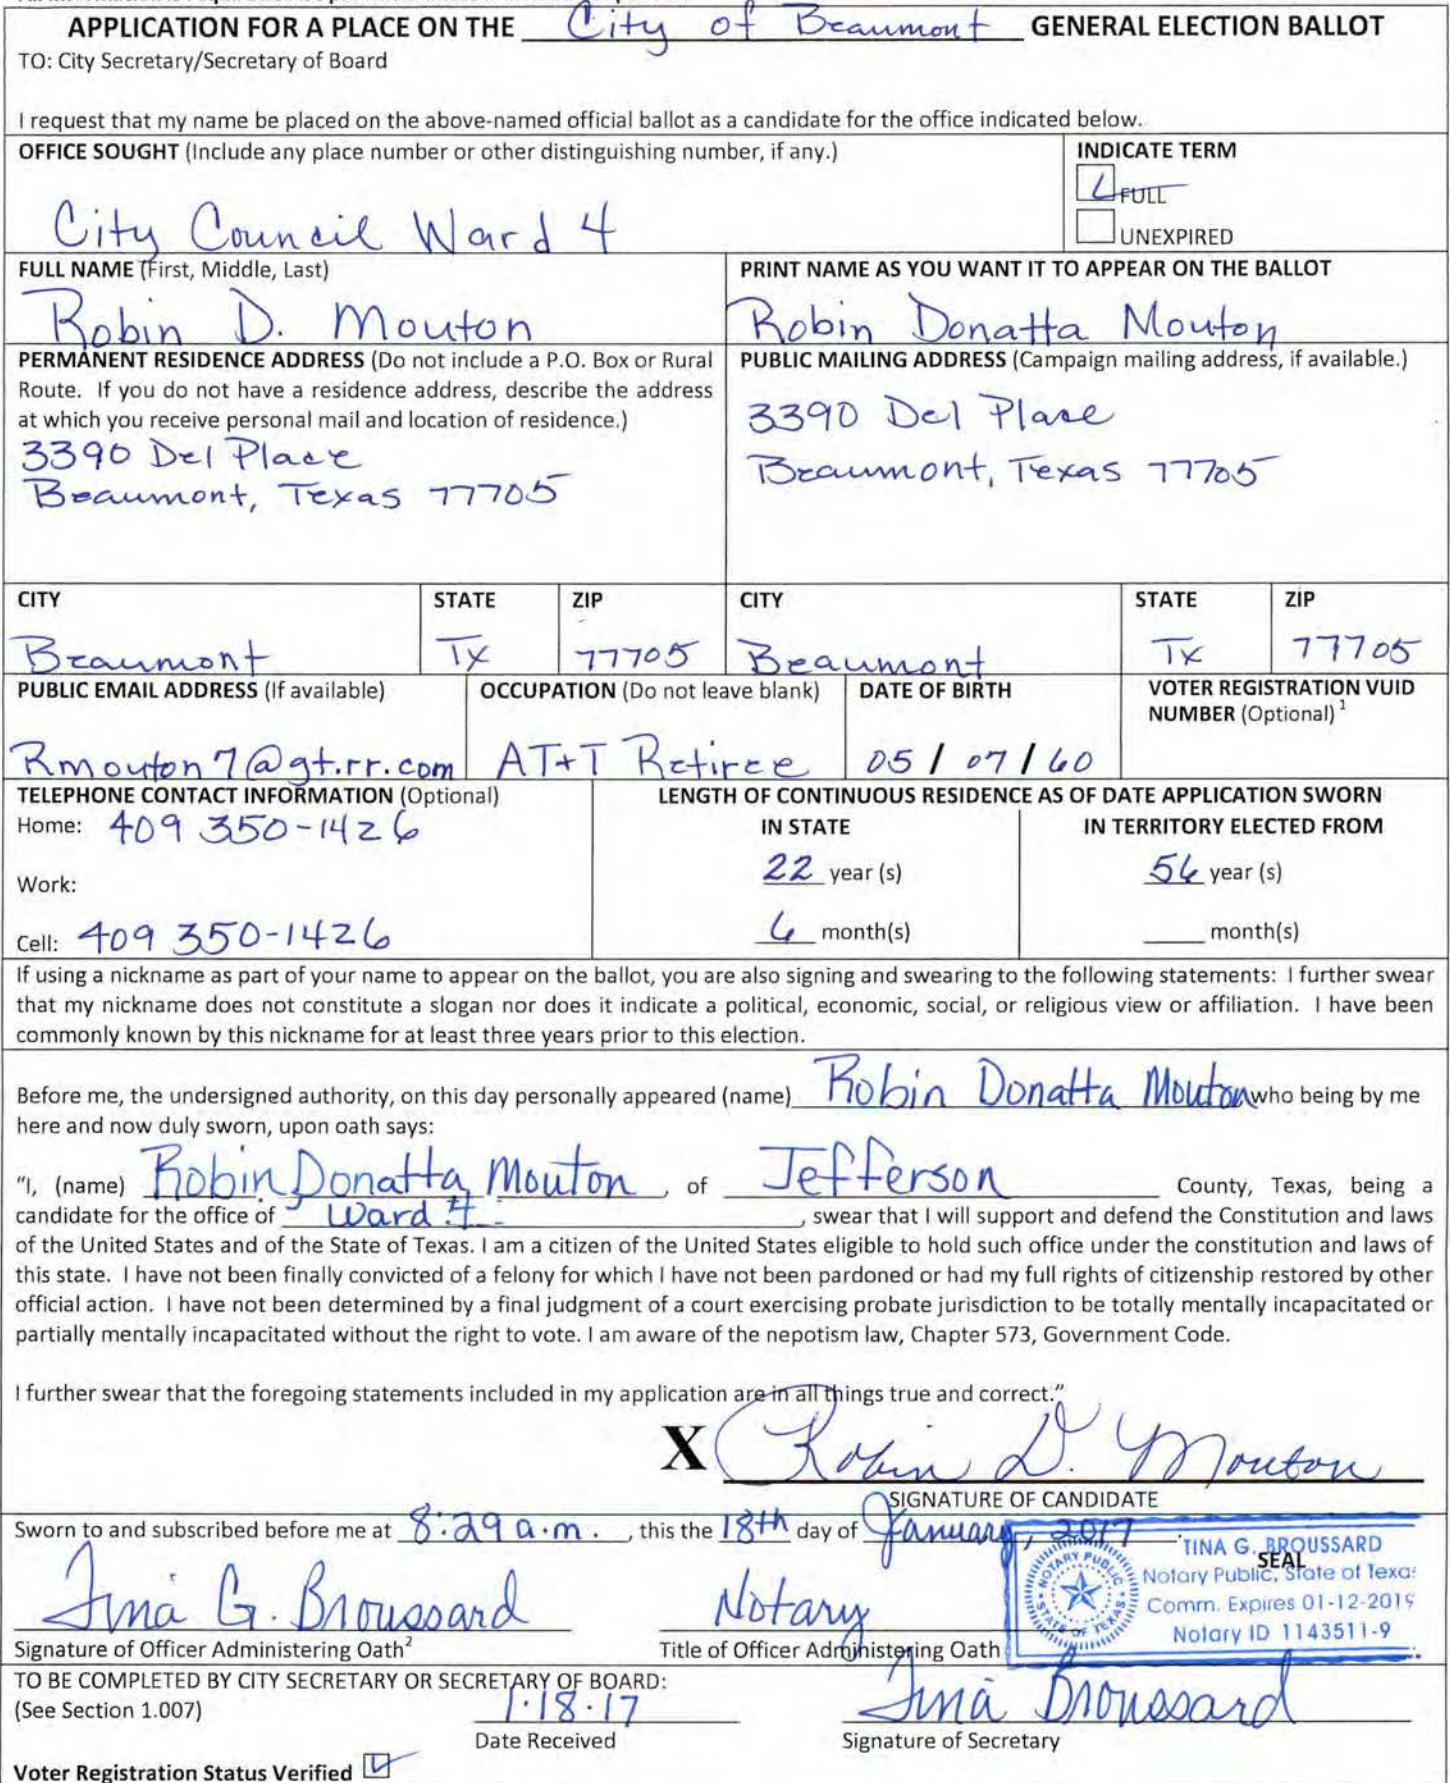 APPLICATION FOR A PLACE ON THE City of Beaumont GENERAL ELECTION BALLOT
TO: City Secretary/Secretary of Board
I request that my name be placed on the above-named official ballot as a candidate for the office indicated below.
OFFICE SOUGHT (Include any place number or other distinguishing number, if any.)
City Council Ward 4
INDICATE TERM
FULL
UNEXPIRED
FULL NAME (First, Middle, Last)
Robin D. Mouton
PRINT NAME AS YOU WANT IT TO APPEAR ON THE BALLOT
Robin Donatta Mouton
PERMANENT RESIDENCE ADDRESS (Do not include a P.O. Box or Rural
Route. If you do not have a residence address, describe the address
at which you receive personal mail and location of residence.)
3390 Del Place
Beaumont, Texas 77705
PUBLIC MAILING ADDRESS (Campaign mailing address, if available.)
3390 Del Place
Beaumont, Texas 77705
CITY STATE ZIP CITY STATE ZIP
Beaumont Tx 77705 Beaumont Tx 77705
PUBLIC EMAIL ADDRESS (If available)
Rmouton7@gt.rr.com
OCCUPATION (Do not leave blank)
AT+T Retiree
DATE OF BIRTH
05 / 07 / 60
VOTER REGISTRATION VUID
NUMBER (Optional) 1
TELEPHONE CONTACT INFORMATION (Optional)
Home: 409 350-1426
Work:
Cell: 409 350-1426
LENGTH OF CONTINUOUS RESIDENCE AS OF DATE APPLICATION SWORN
IN STATE
22 year (s)
6 month(s)
IN TERRITORY ELECTED FROM
56 year (s)
month(s)
If using a nickname as part of your name to appear on the ballot, you are also signing and swearing to the following statements: I further swear
that my nickname does not constitute a slogan nor does it indicate a political, economic, social, or religious view or affiliation. I have been
commonly known by this nickname for at least three years prior to this election.
Before me, the undersigned authority, on this day personally appeared (name) Robin Donatta Mouton who being by me
here and now duly sworn, upon oath says:
"I, (name) Robin Donatta Mouton, of Jefferson County, Texas, being a
candidate for the office of Ward 4, swear that I will support and defend the Constitution and laws
of the United States and of the State of Texas. I am a citizen of the United States eligible to hold such office under the constitution and laws of
this state. I have not been finally convicted of a felony for which I have not been pardoned or had my full rights of citizenship restored by other
official action. I have not been determined by a final judgment of a court exercising probate jurisdiction to be totally mentally incapacitated or
partially mentally incapacitated without the right to vote. I am aware of the nepotism law, Chapter 573, Government Code.
I further swear that the foregoing statements included in my application are in all things true and correct."
X Robin D. Mouton
SIGNATURE OF CANDIDATE
Sworn to and subscribed before me at 8:29 a.m., this the 18th day of January, 2017.
SEAL
TINA G. BROUSSARD
Notary Public, State of Texas
Comm. Expires 01-12-2019
Notary ID 1143511-9
NOTARY PUBLIC
STATE OF TEXAS
Tina G. Broussard
Signature of Officer Administering Oath2
Notary
Title of Officer Administering Oath
TO BE COMPLETED BY CITY SECRETARY OR SECRETARY OF BOARD:
(See Section 1.007)
1.18.17
Date Received
Tina Broussard
Signature of Secretary
Voter Registration Status Verified